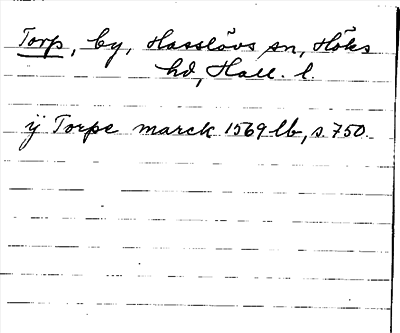 Torp, by, Hasslövs sn, Höks
hd, Hall. l.
ij Torpe marck 1569 lb, s. 750.